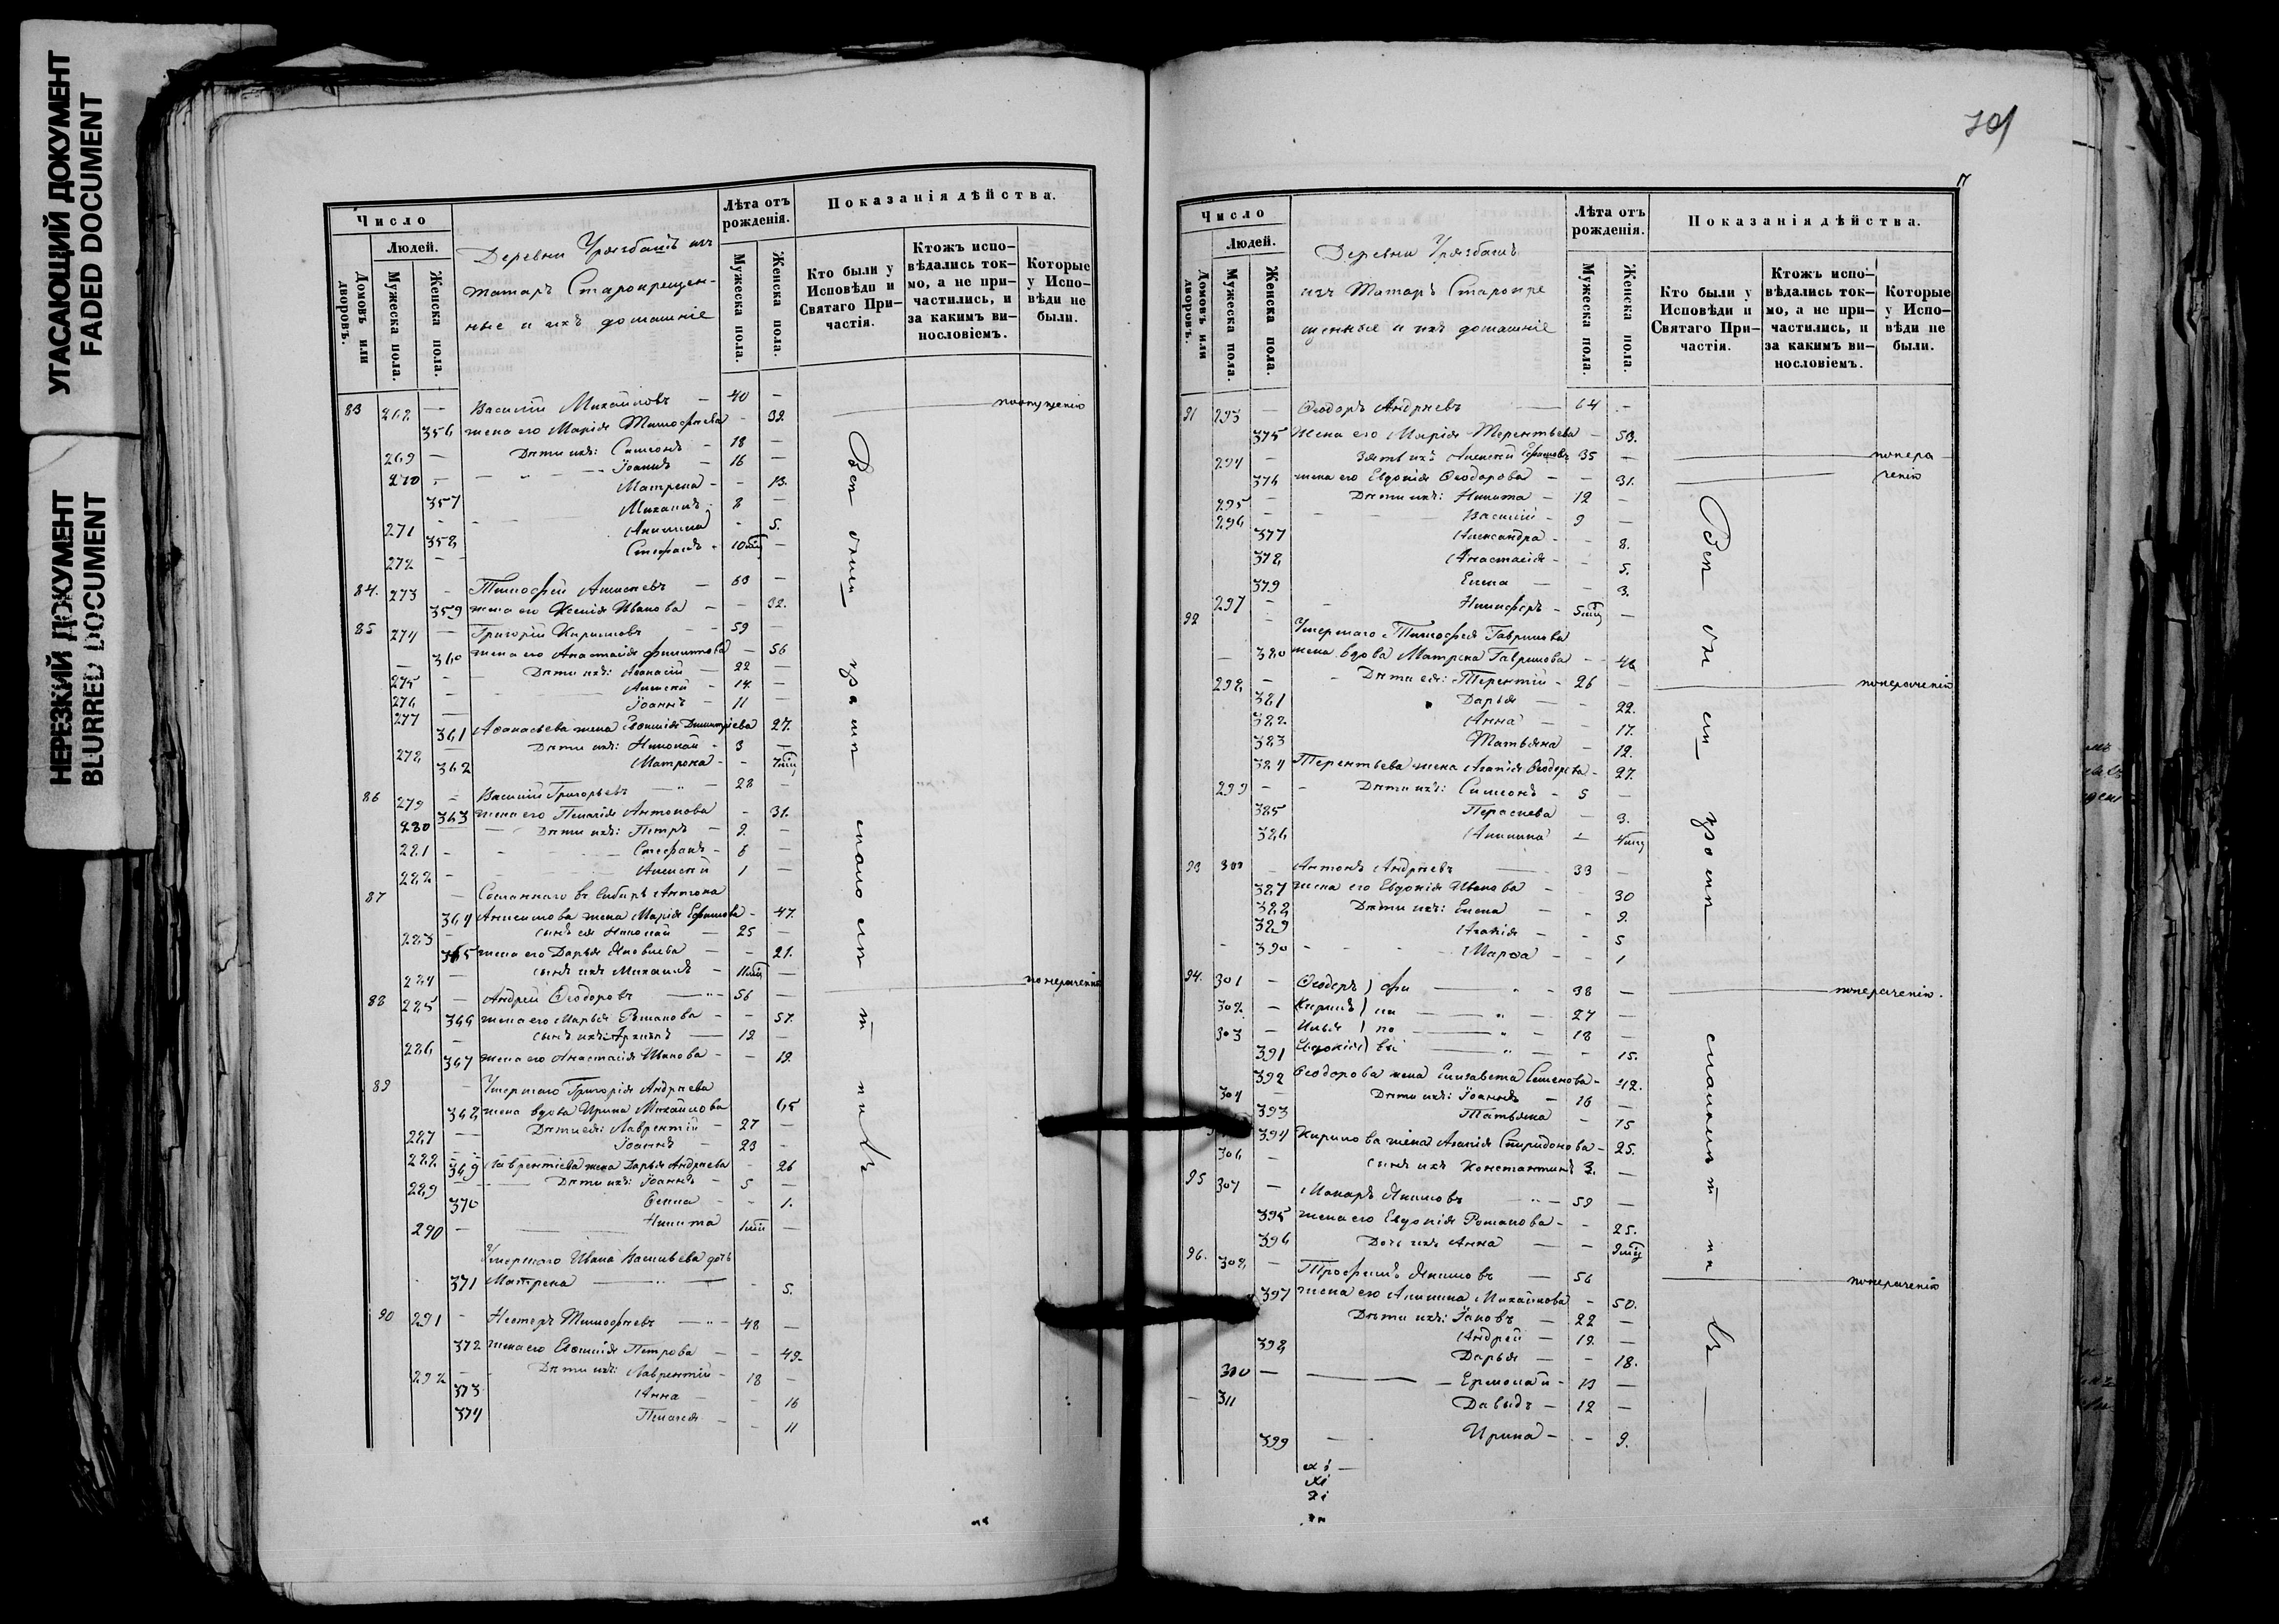 УГАСАЮЩИЙ ДОКУМЕНТ
FADED DOCUMENT
НЕРЕЗКИЙ ДОКУМЕНТ
BLURRED DOCUMENT
Число
Людей.
Домовъ или дворовъ.
Мужеска пола.
Женска пола.
Деревни изъ
татаръ Старокрещен-
ные и ихъ домашніе
Лѣта отъ рожденія.
Мужеска пола.
Женска пола.
Показанія дѣйства.
Кто были у Исповѣди и Святаго При-частія.
Ктожъ испо-вѣдались ток-мо, а не при-частились, и за какимъ ви-нословіемъ.
Которые у Испо-вѣди не были.
83 268 — Василій Михайловъ — 40 — поопущенію
356 жена его Марія Тимофѣева - 39.
269 — Дѣти ихъ: Симеонъ - 18 —
270 — Іоаннъ - 16 —
357 Матрена - - 13.
271 - Михаилъ - 2 —
358 Акилина - 5.
272 — Стефанъ - 10мѣц —
84. 273 - Тимофей Алексѣевъ — 63 —
359 жена его Ксенія Иванова - - 32.
85 274 — Григорій Кириловъ - 59 —
360 жена его Анастасія Филиппова - 56
275 - Дѣти ихъ: Аѳанасій — 22 —
276 - Алексѣй - 14. —
277 — Іоаннъ - 11 —
361 Аѳанасьева жена Евѳимія Димитріева 27.
278 — Дѣти ихъ: Николай - 3 —
362 Матрона - - 7мѣц
86 279 - Василій Григорьевъ — 28 —
363 жена его Пелагія Антонова - 31.
280 — Дѣти ихъ: Петръ - 9. —
281 - Стефанъ - 6 —
282 - Алексѣй 1 —
87 — Сосланнаго въ Сибирь Антона
364 Анисимова жена Марія Ефимова - 47.
283 - сынъ ея Николай — 25 —
365 жена его Дарья Яковлева - 21.
284 — сынъ ихъ Михаилъ - 11мѣц —
88 285 — Андрей Ѳеодоровъ — 56 — понераченію
366 жена его Марья Романова - - 57.
286 - сынъ ихъ — 19 —
367 жена его Анастасія Иванова - - 19.
89 - Умершаго Григорія Андреева
368 жена вдова Ирина Михайлова 65
287 — Дѣти ея: Лаврентій - 27 —
288 Іоаннъ - 23 -
369 Лаврентіева жена Дарья Андреева - 26
289 — Дѣти ихъ: Іоаннъ - 5 —
370 - 1.
290 - Никита 1мѣц —
Умершаго Ивана Васильева дочь
371 Матрена — 5.
90 291 - Несторъ Тимофѣевъ — 48 —
372 жена его Евѳимія Петрова - - 49.
292 — Дѣти ихъ: Лаврентій - 18 —
373 Анна - - 16
374 Пелагея - - 11
Всѣ они
701
17
Число
Людей.
Домовъ или дворовъ.
Мужеска пола.
Женска пола.
Деревни
изъ Татаръ Старокре
щенные и ихъ домашніе
Лѣта отъ рожденія.
Мужеска пола.
Женска пола.
Показанія дѣйства.
Кто были у Исповѣди и Святаго При-частія.
Ктожъ испо-вѣдались ток-мо, а не при-частились, и за какимъ ви-нословіемъ.
Которые у Испо-вѣди не были.
91 293 — Ѳеодоръ Андреевъ — 64 —
375 Жена его Марія Терентьева - 53.
294 - Зять ихъ Алексѣй 35 — понера
376 жена его Евдокія Ѳеодорова - - 31. ченію
295 - Дѣти ихъ: Никита - 12 -
296 - Василій - 9 —
377 Александра - - 8.
378 Анастасія - - 5.
379 Елена — 3.
297 - Никифоръ - 5мѣц —
92 - Умершаго Тимофея Гаврилова
380 жена вдова Матрена Гаврилова - - 46
298 - Дѣти ея: Терентій - 26 — понераченію
381 Дарья - 22.
382 Анна - - 17.
383 Татьяна - 12.
384 Терентьева жена Агапія Ѳеодорова - 27.
299 - Дѣти ихъ: Симеонъ - 5 —
385 - 3.
386 Акилина - 4мѣц
93 300 - Антонъ Андреевъ — 33 —
387 жена его Евдокія Иванова - 30
388 Дѣти ихъ: Елена - - 9.
389 Агапія - - 5
390 - Марѳа - - 1
94. 301 - Ѳеодоръ — 38 — понераченію.
302 - Кирилъ — 27 —
303 - Илья — 18 —
391 Евдокія — 15.
392 Ѳеодорова жена Елизавета Семенова - 42.
304 - Дѣти ихъ: Іоаннъ - 16 —
393 Татьяна - 15
394 Кирилова жена Агапія Спиридонова - 25.
306 - сынъ ихъ Константинъ 3. —
95 307 — Макаръ Якимовъ — 59 —
395 жена его Евдокія Романова - - 25.
396 Дочь ихъ Анна — 9мѣц
96. 308 - Трофимъ Якимовъ — 56 — понераченію
397 жена его Акилина Михайлова - 50.
Дѣти ихъ: Іаковъ — 22 —
398 Андрей — 19. —
Дарья — 18.
310 — Ермолай - 13 —
311 Давыдъ - 12 —
399 — Ирина - - 9.
Всѣ